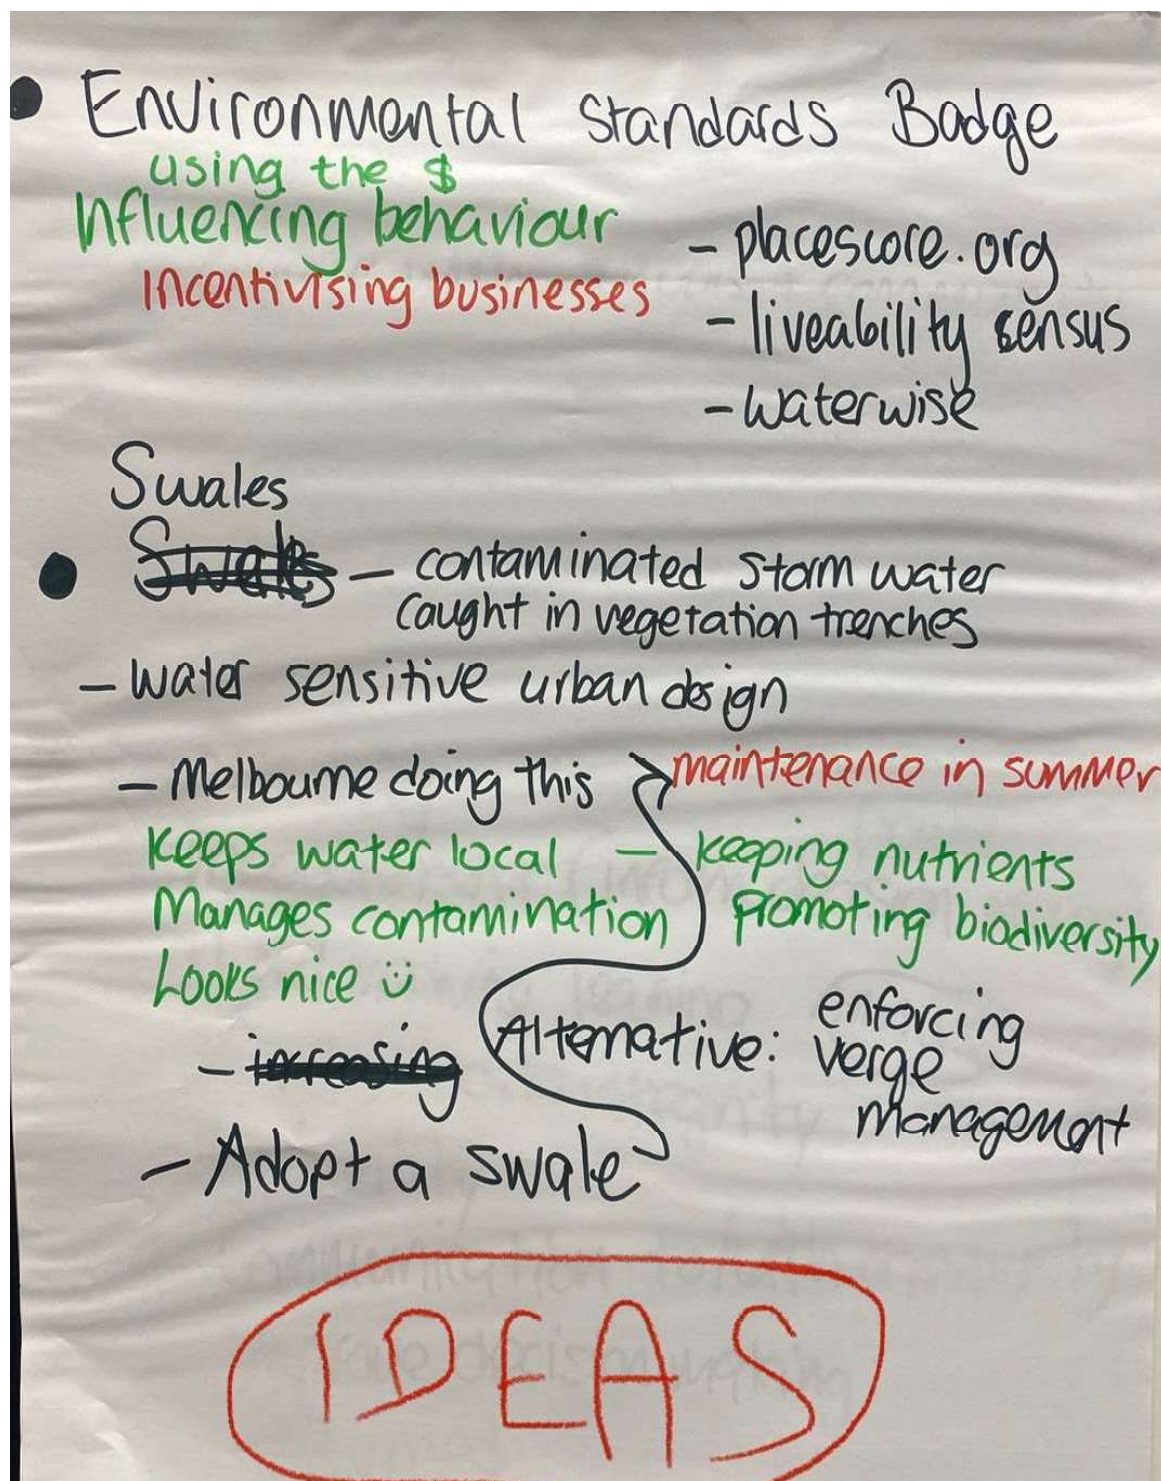 • Environmental Standards Badge
using the $
Influencing behaviour
Incentivising businesses
- placescore.org
- liveability census
- waterwise
Swales
• Swales - contaminated storm water
caught in vegetation trenches
- water sensitive urban design
- Melbourne doing this
maintenance in summer
Keeps water local - keeping nutrients
Manages contamination
promoting biodiversity
Looks nice ü
- increasing
Alternative: enforcing
verge
management
- Adopt a swale
IDEAS